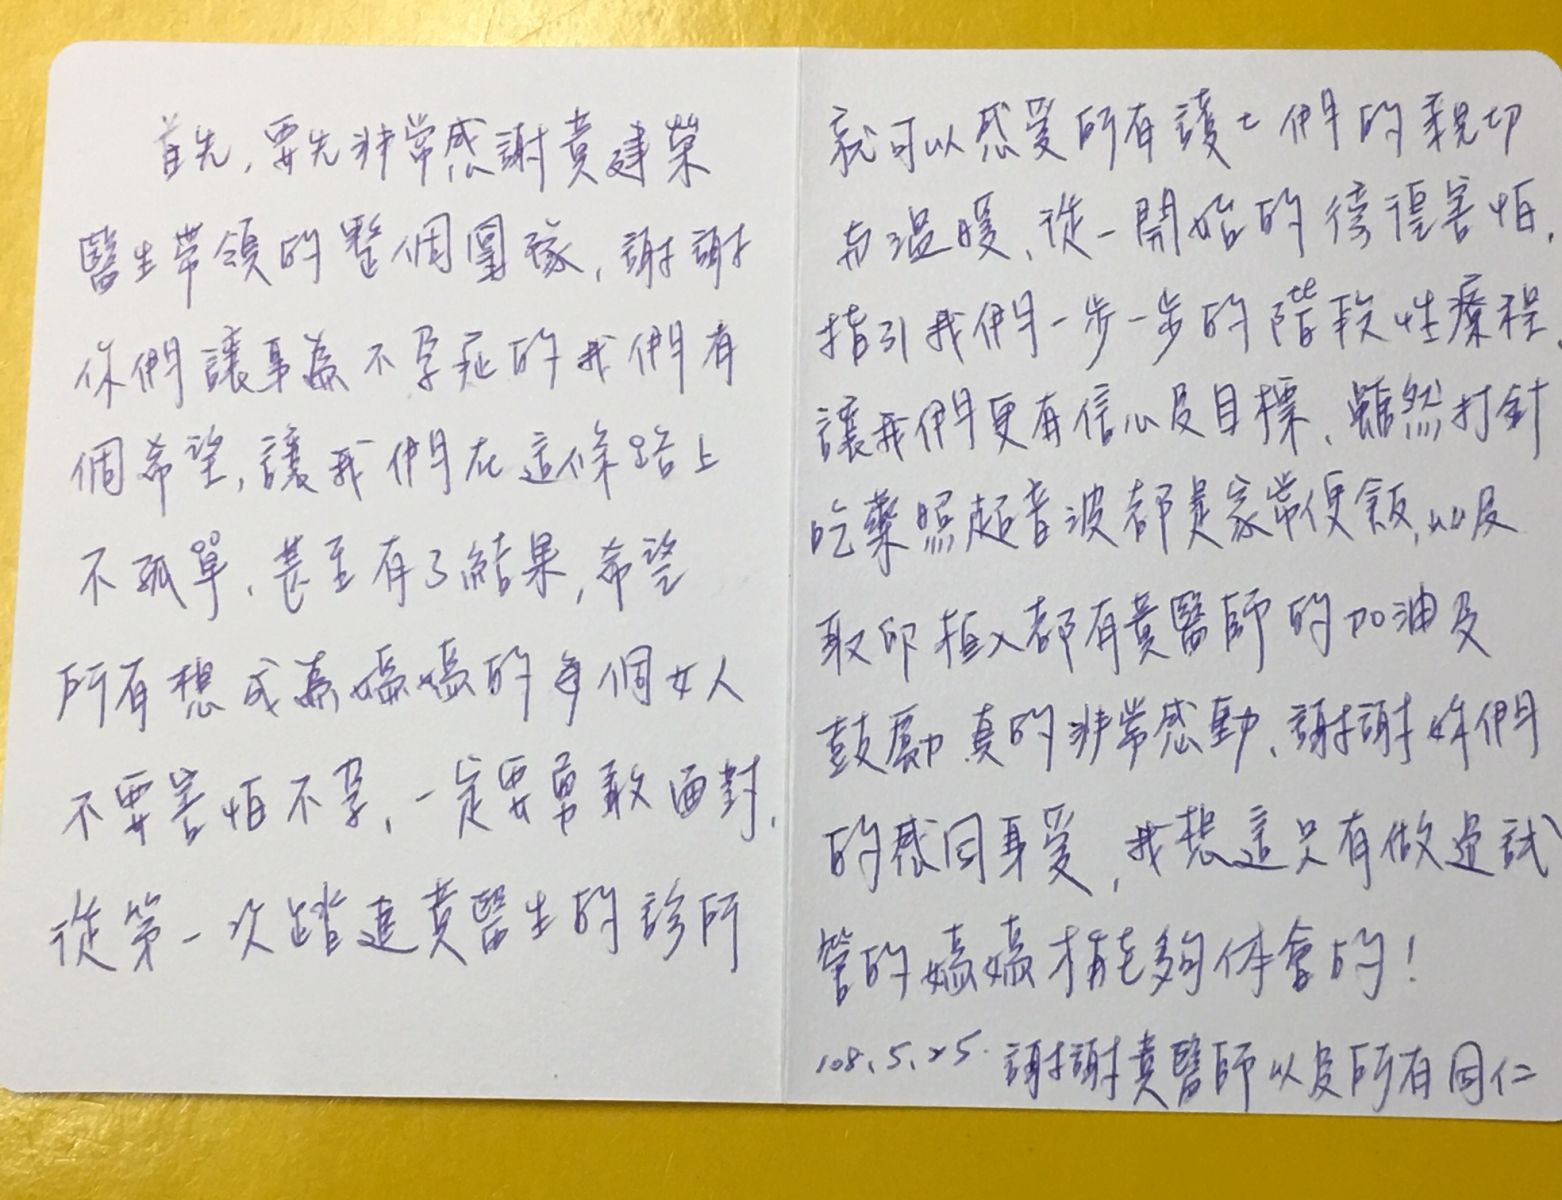 首先,要先非常感謝黃建榮
醫生帶領的整個團隊,謝謝
你們讓身為不孕症的我們有
個希望,讓我們在這條路上
不孤單、甚至有了結果,希望
所有想成為媽媽的每個女人
不要害怕不孕、一定要勇敢面對,
從第一次踏進黃醫生的診所
就可以感受所有護士們的親切
與溫暖、從一開始的徬徨害怕,
指引我們一步一步的階段性療程,
讓我們更有信心及目標、雖然打針
吃藥照超音波都是家常便飯,以及
取卵植入都有黃醫師的加油及
鼓勵,真的非常感動、謝謝妳們
的感同身受,我想這只有做過試
管的媽媽才能夠体會的!
108.5.25. 謝謝黃醫師以及所有同仁